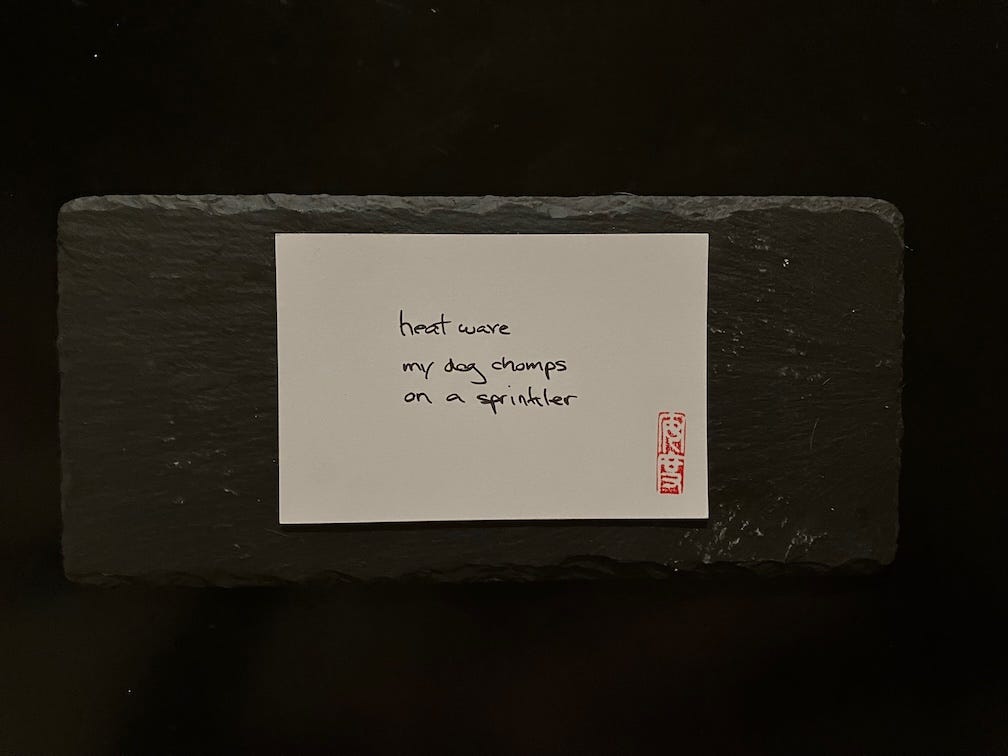 heat wave
my dog chomps
on a sprinkler